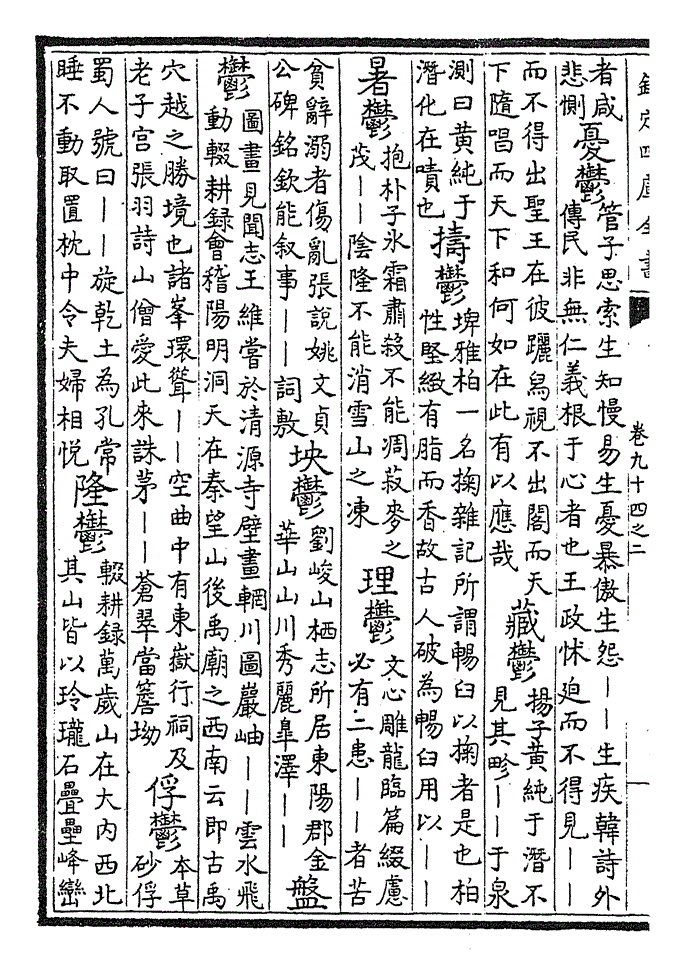 欽定四庫全書
卷九十四之二
者咸
悲惻
憂鬱
管子思索生知慢易生憂暴傲生怨——生疾韓詩外
傳民非無仁義根于心者也王政怵迫而不得見——
而不得出聖王在彼躧舄視不出閤而天
下隨唱而天下和何如在此有以應哉
藏鬱
揚子黄純于潛不
見其畛——于泉
測曰黄純于
潛化在嘖也
擣鬱
埤雅柏一名掬雜記所謂暢臼以掬者是也柏
性堅緻有脂而香故古人破為暢臼用以——
暑鬱
抱朴子氷霜肅殺不能凋菽麥之
茂——陰隆不能消雪山之凍
理鬱
文心雕龍臨篇綴慮
必有二患——者苦
貧辭溺者傷亂張說姚文貞
公碑銘欽能叙事——詞敷
坱鬱
劉峻山栖志所居東陽郡金
華山山川秀麗臯澤——
盤
鬱
圖畫見聞志王維嘗於清源寺壁畫輞川圖巖岫——雲水飛
動輟耕録會稽陽明洞天在秦望山後禹廟之西南云即古禹
穴越之勝境也諸峯環聳——空曲中有東嶽行祠及
老子宫張羽詩山僧愛此來誅茅——蒼翠當簷坳
俘鬱
本草
砂俘
蜀人號曰——旋乾土為孔常
睡不動取置枕中令夫婦相悦
隆鬱
輟耕録萬歲山在大内西北
其山皆以玲瓏石疊壘峰巒